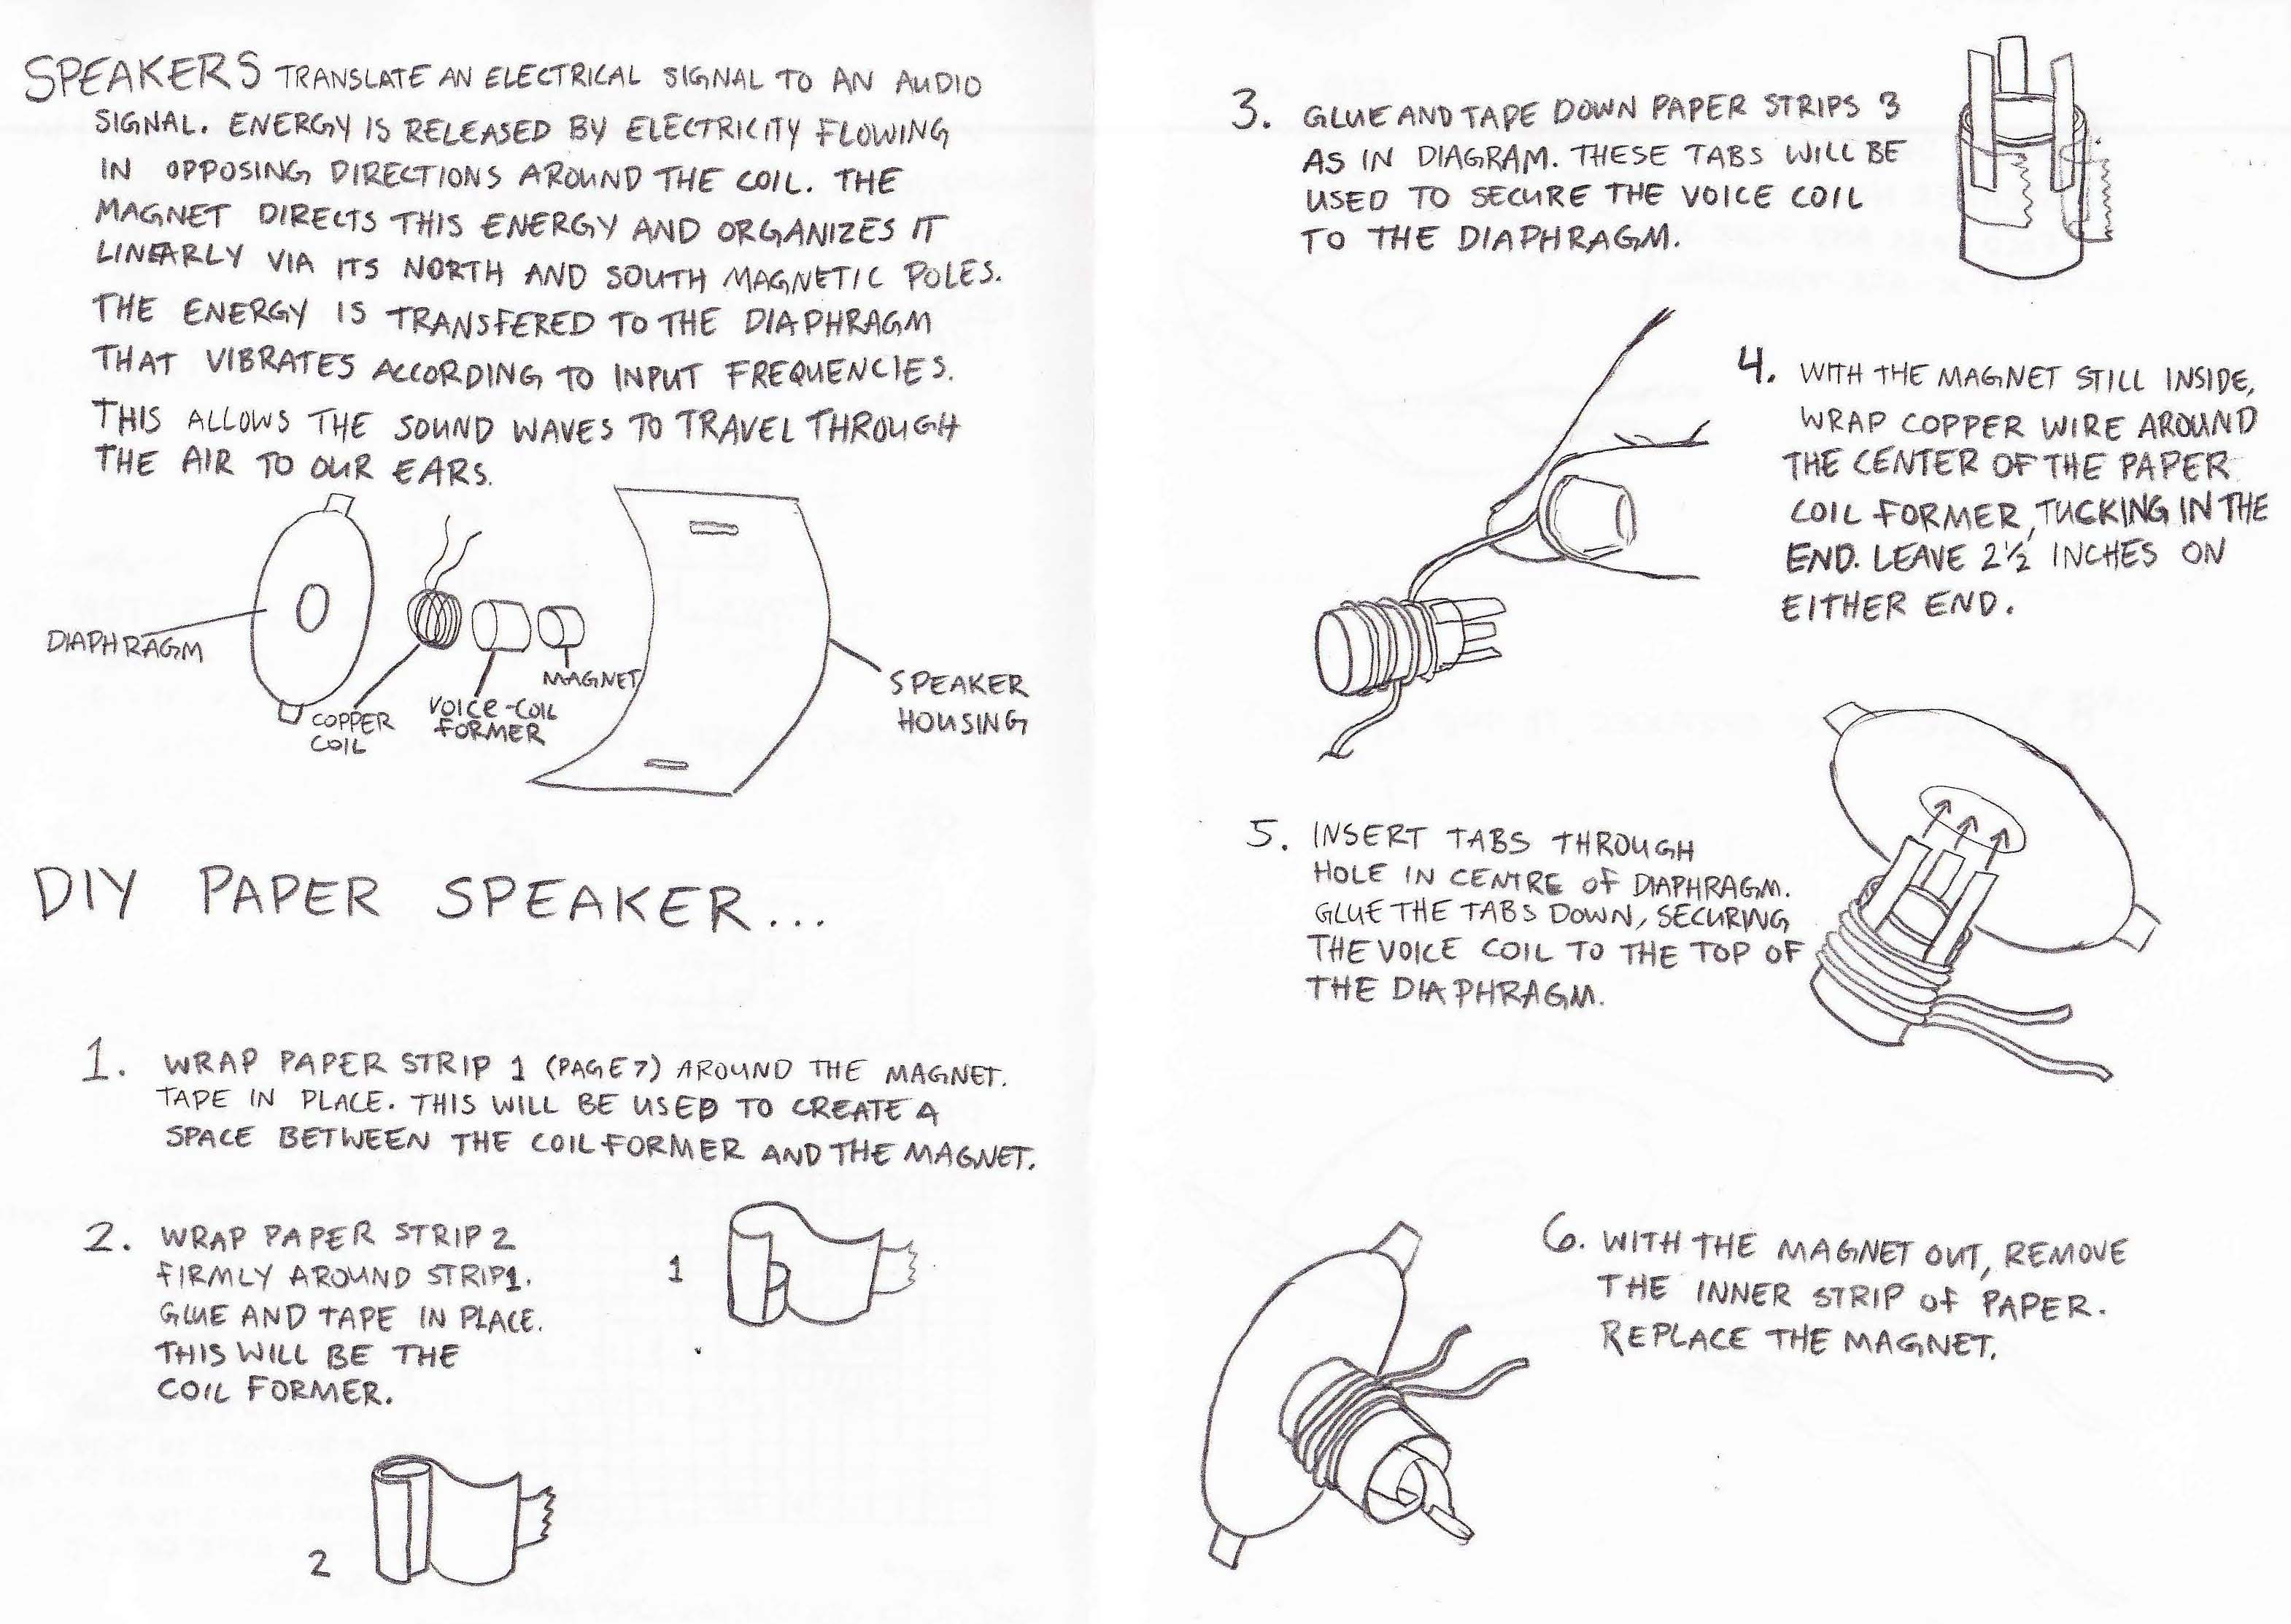 SPEAKERS TRANSLATE AN ELECTRICAL SIGNAL TO AN AUDIO
SIGNAL. ENERGY IS RELEASED BY ELECTRICITY FLOWING
IN OPPOSING DIRECTIONS AROUND THE COIL. THE
MAGNET DIRECTS THIS ENERGY AND ORGANIZES IT
LINEARLY VIA ITS NORTH AND SOUTH MAGNETIC POLES.
THE ENERGY IS TRANSFERED TO THE DIAPHRAGM
THAT VIBRATES ACCORDING TO INPUT FREQUENCIES.
THIS ALLOWS THE SOUND WAVES TO TRAVEL THROUGH
THE AIR TO OUR EARS.
DIAPHRAGM
COPPER
COIL
VOICE-COIL
FORMER
MAGNET
SPEAKER
HOUSING
DIY PAPER SPEAKER...
1. WRAP PAPER STRIP 1 (PAGE 7) AROUND THE MAGNET.
TAPE IN PLACE. THIS WILL BE USED TO CREATE A
SPACE BETWEEN THE COIL FORMER AND THE MAGNET.
2. WRAP PAPER STRIP 2
FIRMLY AROUND STRIP 1.
GLUE AND TAPE IN PLACE.
THIS WILL BE THE
COIL FORMER.
1
2
3. GLUE AND TAPE DOWN PAPER STRIPS 3
AS IN DIAGRAM. THESE TABS WILL BE
USED TO SECURE THE VOICE COIL
TO THE DIAPHRAGM.
4. WITH THE MAGNET STILL INSIDE,
WRAP COPPER WIRE AROUND
THE CENTER OF THE PAPER
COIL FORMER, TUCKING IN THE
END. LEAVE 2½ INCHES ON
EITHER END.
5. INSERT TABS THROUGH
HOLE IN CENTRE OF DIAPHRAGM.
GLUE THE TABS DOWN, SECURING
THE VOICE COIL TO THE TOP OF
THE DIAPHRAGM.
6. WITH THE MAGNET OUT, REMOVE
THE INNER STRIP OF PAPER.
REPLACE THE MAGNET.